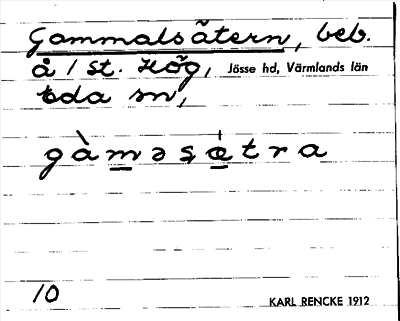 Gammalsätern, beb.
å 1 st. Hög, Jösse hd, Värmlands län
Eda sn,
gàm̲əsæ̲tra
10
KARL RENCKE 1912